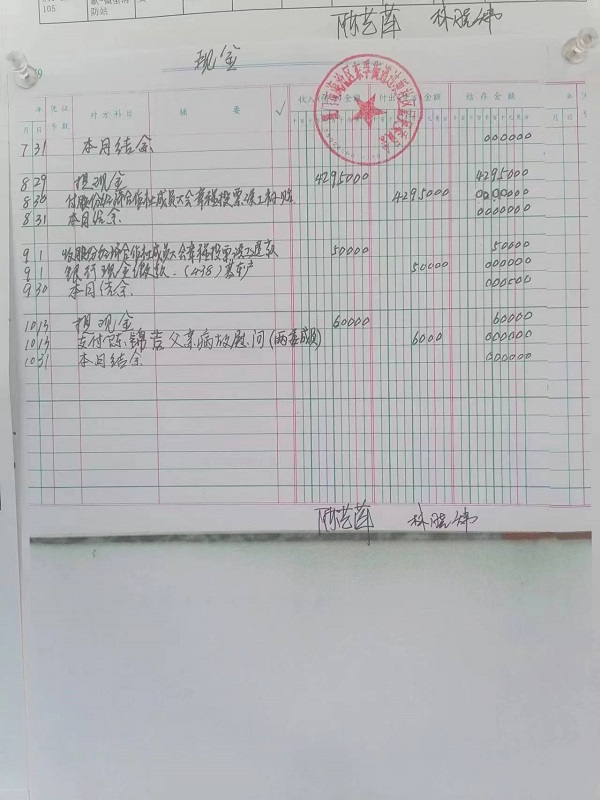 105
防站
陈艺萍 林晓炜
现金
年 凭证 对方科目 摘要 √ 收入金额 付出金额 结存金额
月 日 号数
7 31 本月结余 000000
8 29 提现金 4295000 4295000
8 30 付股份经济合作社成员大会章程投票误工补贴 4295000 000000
8 31 本月结余 0000000
9 1 收股份经济合作社成员大会章程投票误工退款 50000 50000
9 1 银行现金缴款.(438) 50000 000000
9 30 本月结余 000000
10 13 提现金 60000 60000
10 13 支付陈锦芸父亲病故慰问(两委成员) 6000 000000
10 31 本月结余 000000
陈艺萍 林晓炜